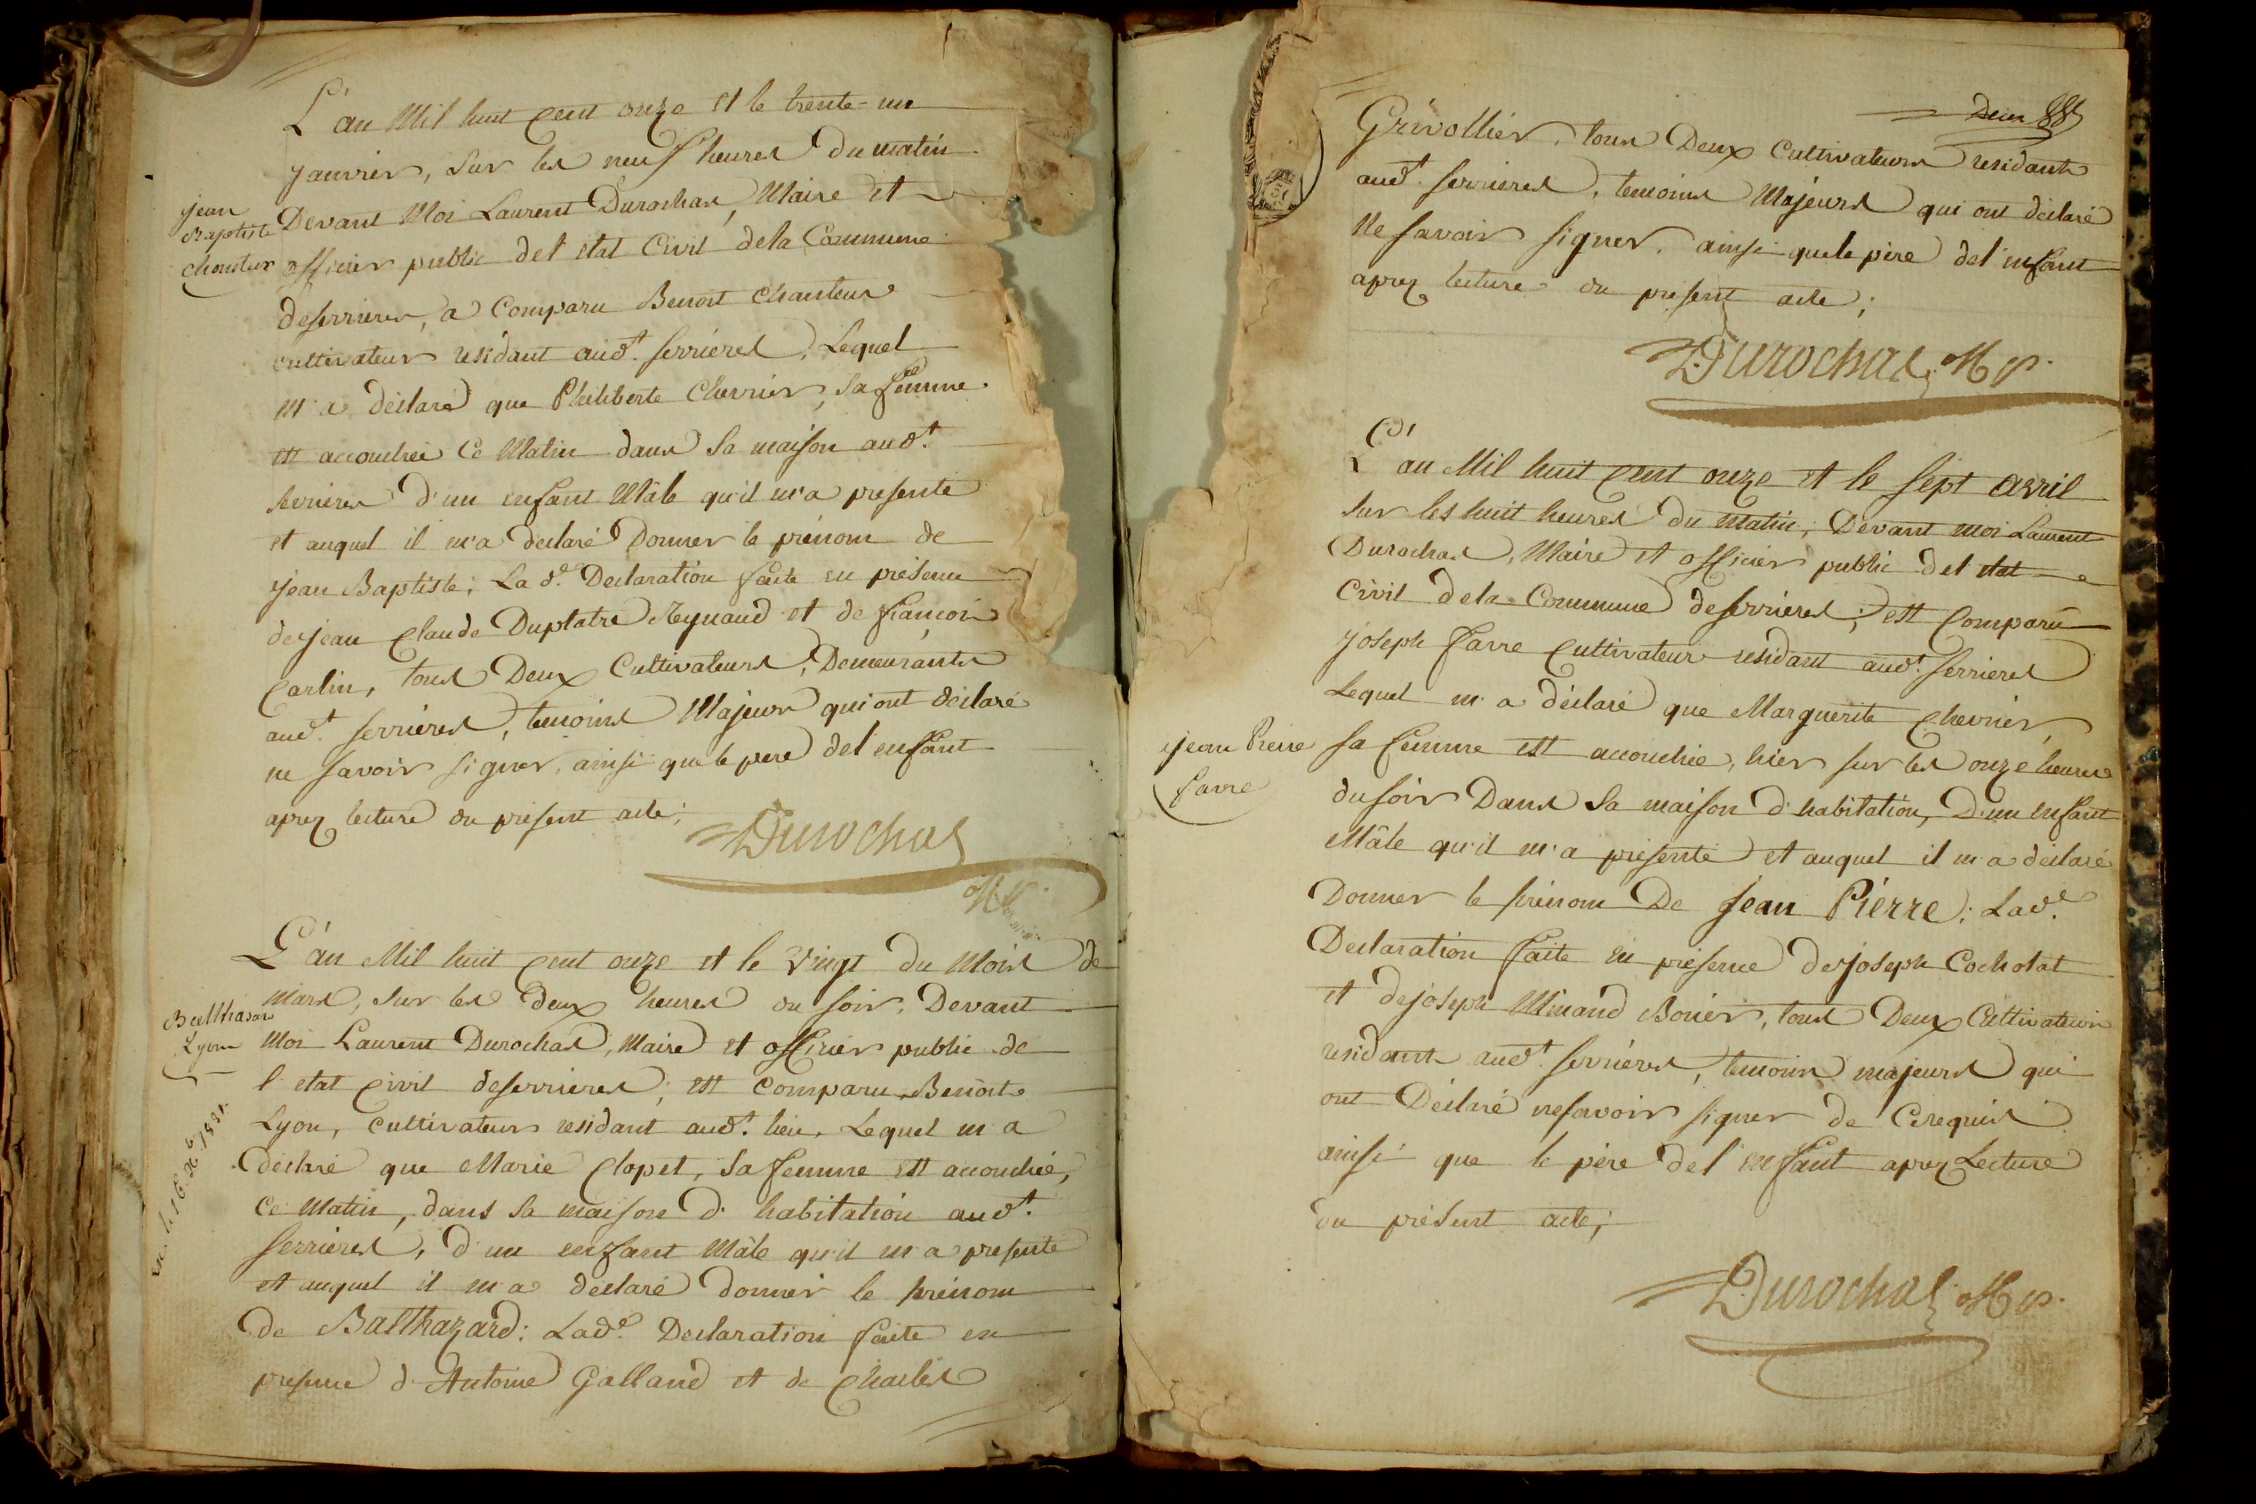 L'an Mil huit Cent onze et le trente-un
janvier, sur les neuf heures du matin
Devant Moi Laurent Durochas, Maire et
jean
Baptiste
chanteur
officier public de l'etat Civil de la Commune
de serrieres, a Comparu Benoit Chanteur
cultivateur residant aud.t serrieres, Lequel
m'a déclaré que Philiberte Chevrier, sa femme
est accouchée Ce Matin dans sa maison aud.t
serrieres d'un enfant Mâle qu'il m'a presenté
et auquel il m'a declaré Donner le prénom de
jean Baptiste; La d.e Declaration faite en présence
de jean Claude Duplatre Reynaud et de françois
Carlin, tous Deux Cultivateurs, Demeurants
aud.t serrieres, temoins Majeurs qui ont déclaré
ne savoir signer, ainsi que le pere de l'enfant
apres lecture du présent acte;
Durochas
M
L'an Mil huit Cent onze et le vingt du Mois de
Mars, sur les deux heures du soir, Devant
Balthasar
Lyon
Moi Laurent Durochas, Maire et officier public de
l'etat Civil de serrieres, est comparu Benoit
Lyon, cultivateur residant aud.t lieu, Lequel m'a
déclaré que Marie Clopet, sa femme est accouchée,
Ce Matin, dans sa maison d'habitation aud.t
serrieres, d'un enfant Mâle qu'il m'a presenté
et auquel il m'a declaré donner le prénom
de Balthazard: La d.e Declaration faite en
presence d'Antoine Galland et de Charles
Deux
Grivollier, tous Deux Cultivateurs residants
aud.t serrieres, temoins Majeurs qui ont déclaré
Ne savoir signer, ainsi que le père de l'enfant
apres lecture du présent acte;
Durochas M
L'an Mil huit Cent onze et le sept avril
sur les huit heures du matin, Devant moi Laurent
Durochas, Maire et officier public de l'etat
Civil de la Commune de serrieres, est Comparu
joseph favre Cultivateur residant aud.t serrieres
Lequel m'a déclaré que Marguerite Chevrier,
jean Pierre
favre
sa femme est accouchée, hier sur les onze heures
du soir Dans sa maison d'habitation, D'un enfant
Mâle qu'il m'a présenté et auquel il m'a déclaré
Donner le prénom De Jean Pierre; La d.e
Declaration faite en présence de joseph Cochotat
et de joseph Minand Borier, tous Deux Cultivateurs
residants aud.t serrieres, temoins majeurs qui
ont Déclaré ne savoir signer de Ce requis
ainsi que le père de l'enfant apres Lecture
du présent acte;
Durochas M